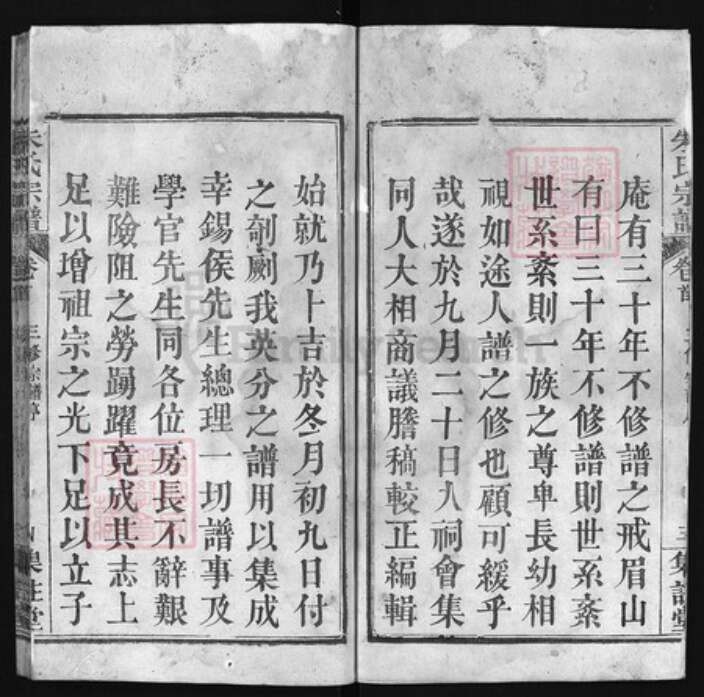 朱氏宗譜
庵有三十年不修譜之戒眉山
有曰三十年不修譜則世系紊
世系紊則一族之尊卑長幼相
視如途人譜之修也顧可緩乎
哉遂於九月二十日入祠會集
同人大相商議謄稿較正編輯
始就乃卜吉於冬月初九日付
之剞劂我英分之譜用以集成
幸錫侯先生總理一切譜事及
學官先生同各位房長不辭艱
難險阻之勞踴躍竟成其志上
足以增祖宗之光下足以立子
朱氏宗譜 卷首
FamilySearch